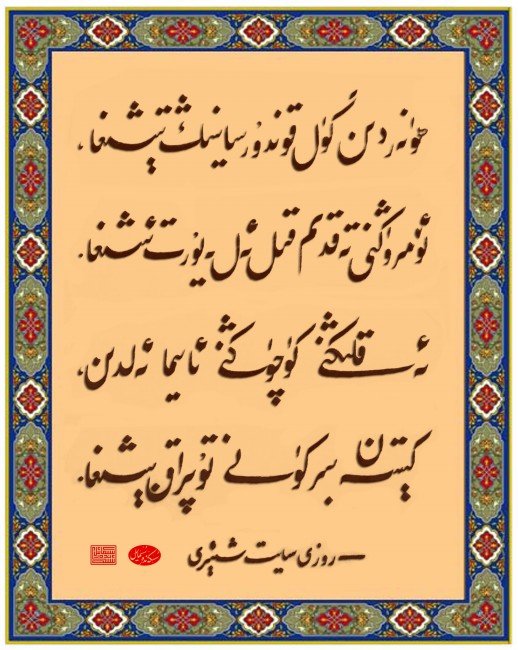 ھۈنەردىن گۈل قوندۇر ساينىڭ تېشىغا،
ئۆمرۈڭنى تەقدىم قىل ئەل - يۇرت ئىشىغا.
ئەقلىڭنى كۈچۈڭنى ئايىما ئەلدىن،
كېتىسەن بىر كۈنى تۇپراق
— روزى سايىت شېئىرى